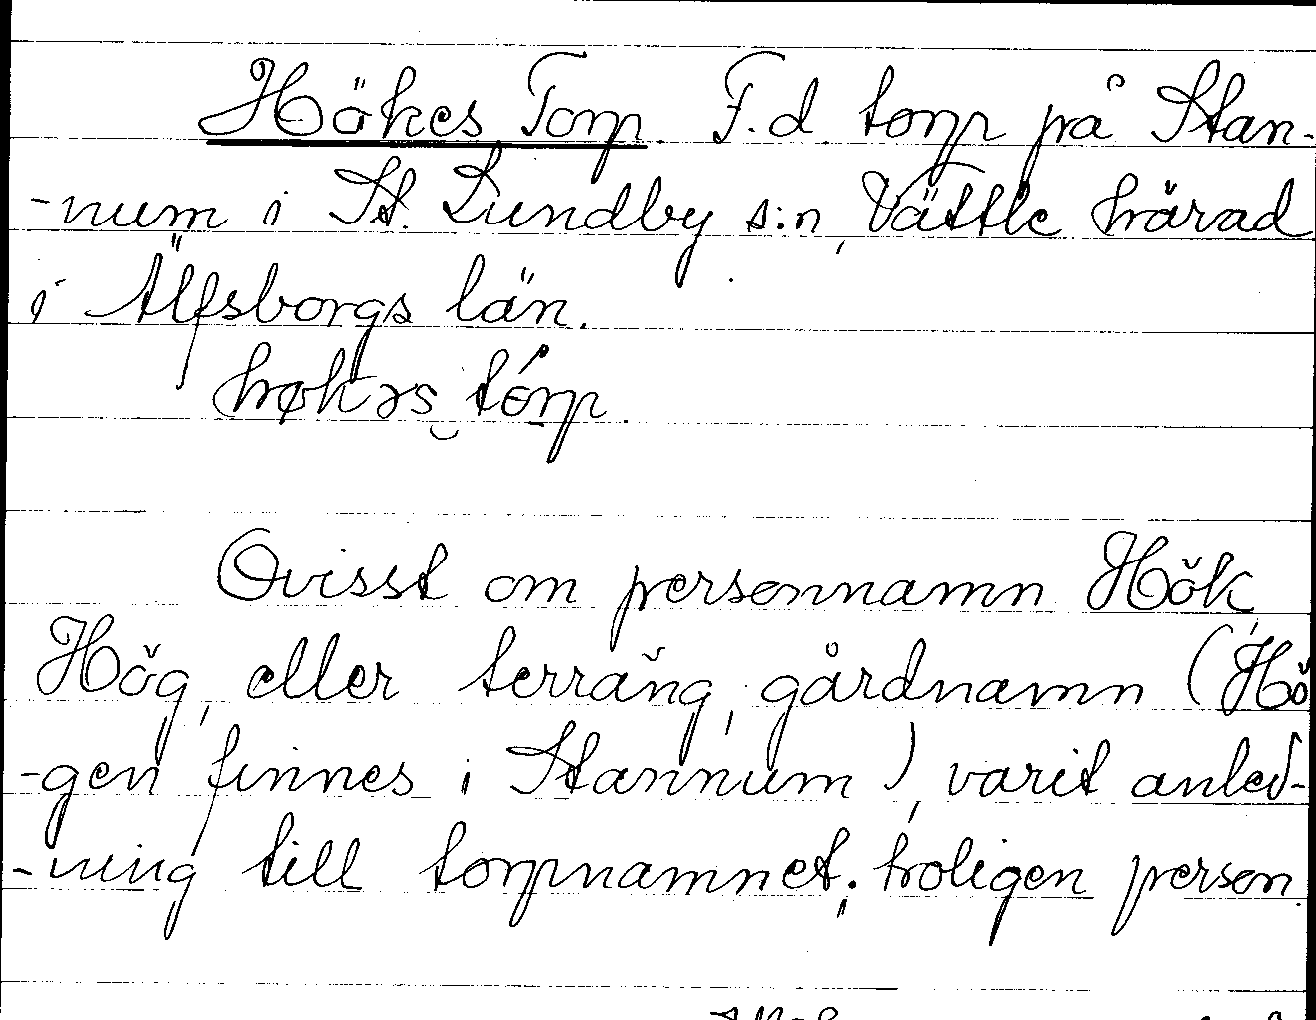 Hökes Torp. F.d. torp på Stan-
-num i St. Lundby s:n, Vättle härad
i Älfsborgs län.
høkəs tórp.
Ovisst om personnamn Hök,
Hög, eller terräng, gårdnamn (Hö
-gen finnes i Stannum), varit anled-
-ning till torpnamnet; troligen person.